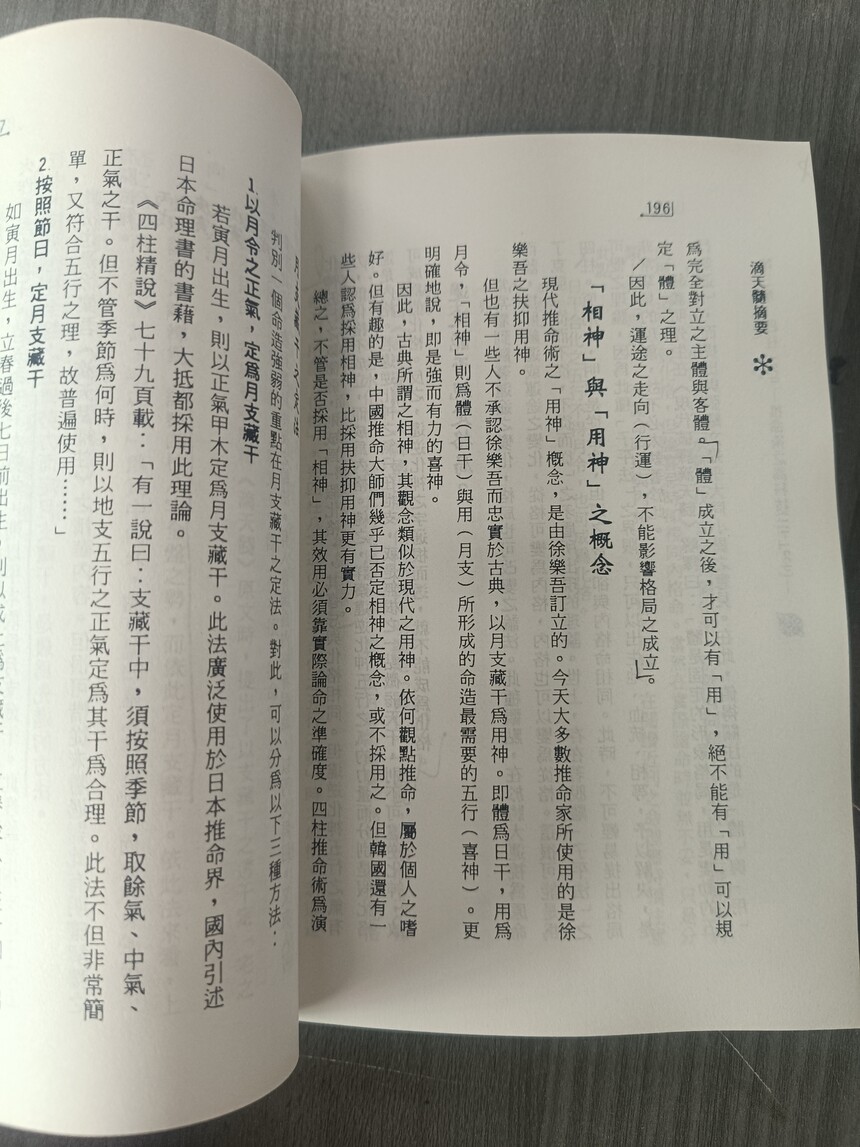 196
滴天髓摘要
爲完全對立之主體與客體。「體」成立之後，才可以有「用」，絕不能有「用」可以規
定「體」之理。
／因此，運途之走向（行運），不能影響格局之成立。
「相神」與「用神」之概念
現代推命術之「用神」概念，是由徐樂吾訂立的。今天大多數推命家所使用的是徐
樂吾之扶抑用神。
但也有一些人不承認徐樂吾而忠實於古典，以月支藏干爲用神。即體爲日干，用爲
月令，「相神」則爲體（日干）與用（月支）所形成的命造最需要的五行（喜神）。更
明確地說，即是強而有力的喜神。
因此，古典所謂之相神，其觀念類似於現代之用神。依何觀點推命，屬於個人之嗜
好。但有趣的是，中國推命大師們幾乎已否定相神之概念，或不採用之。但韓國還有一
些人認爲採用相神，比採用扶抑用神更有實力。
總之，不管是否採用「相神」，其效用必須靠實際論命之準確度。四柱推命術爲演
判別一個命造強弱的重點在月支藏干之定法。對此，可以分爲以下三種方法：
1.以月令之正氣，定爲月支藏干
若寅月出生，則以正氣甲木定爲月支藏干。此法廣泛使用於日本推命界，國內引述
日本命理書的書藉，大抵都採用此理論。
《四柱精說》七十九頁載：「有一說曰：支藏干中，須按照季節，取餘氣、中氣、
正氣之干。但不管季節爲何時，則以地支五行之正氣定爲其干爲合理。此法不但非常簡
單，又符合五行之理，故普遍使用……」
2.按照節日，定月支藏干
如寅月出生，立春過後七日前出生